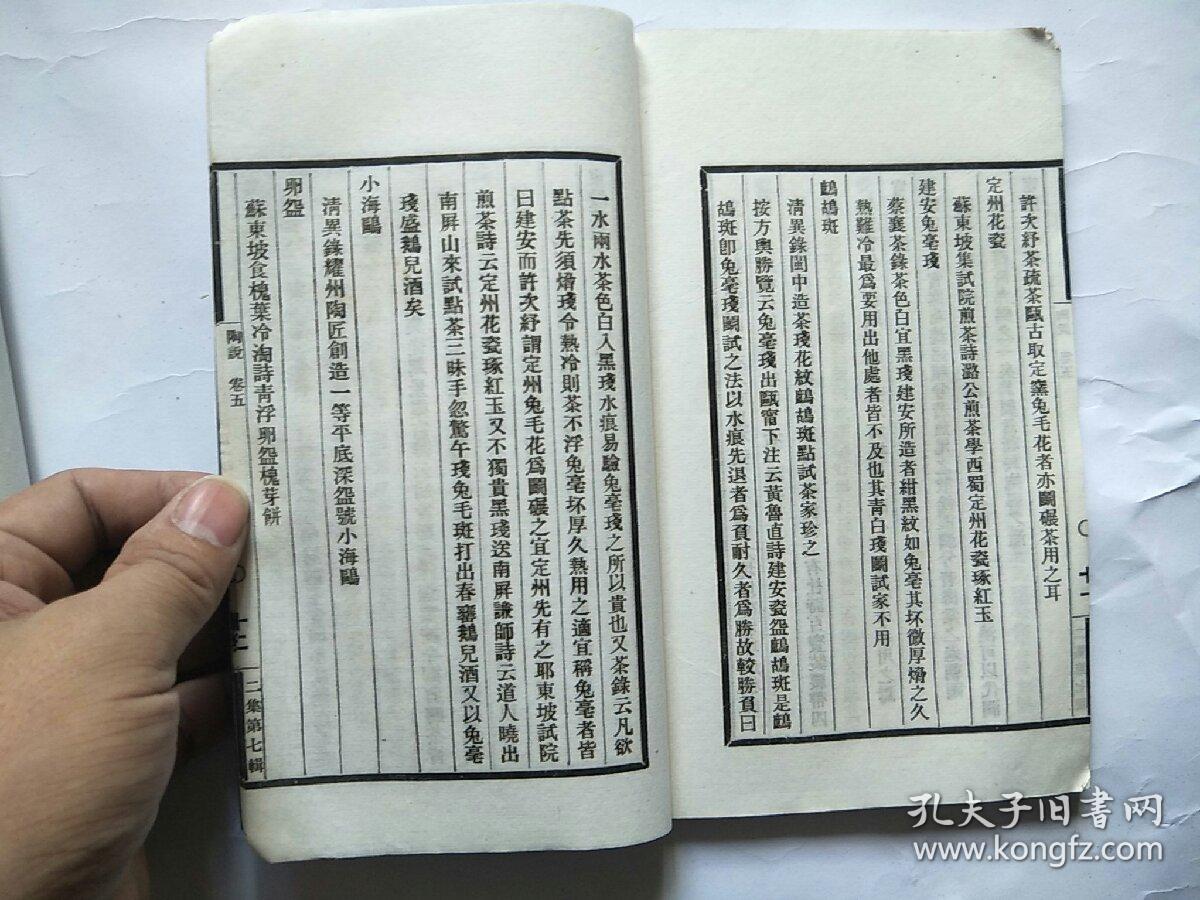 許次紓茶疏茶甌古取定窰兔毛花者亦鬭碾茶用之耳
定州花瓷
蘇東坡集試院煎茶詩潞公煎茶學西蜀定州花瓷琢紅玉
建安兔毫琖
蔡襄茶錄茶色白宜黑琖建安所造者紺黑紋如兔毫其坏微厚熁之久
熱難冷最爲要用出他處者皆不及也其青白琖鬭試家不用
鷓鴣斑
清異錄閩中造茶琖花紋鷓鴣斑點試茶家珍之
按方輿勝覽云兔毫琖出甌甯下注云黃魯直詩建安瓷盌鷓鴣斑是鷓
鴣斑卽兔毫琖鬭試之法以水痕先退者爲負耐久者爲勝故較勝負曰
一水兩水茶色白入黑琖水痕易驗兔毫琖之所以貴也又茶錄云凡欲
點茶先須熁琖令熱冷則茶不浮兔毫坏厚久熱用之適宜稱兔毫者皆
曰建安而許次紓謂定州兔毛花爲鬭碾之宜定州先有之耶東坡試院
煎茶詩云定州花瓷琢紅玉又不獨貴黑琖送南屏謙師詩云道人曉出
南屏山來試點茶三昧手忽驚午琖兔毛斑打出春甕鵝兒酒又以兔毫
琖盛鵝兒酒矣
小海鷗
清異錄耀州陶匠創造一等平底深盌號小海鷗
卵盌
蘇東坡食槐葉冷淘詩青浮卵盌槐芽餅
陶說 卷五
二集第七輯
孔夫子旧书网
www.kongfz.com